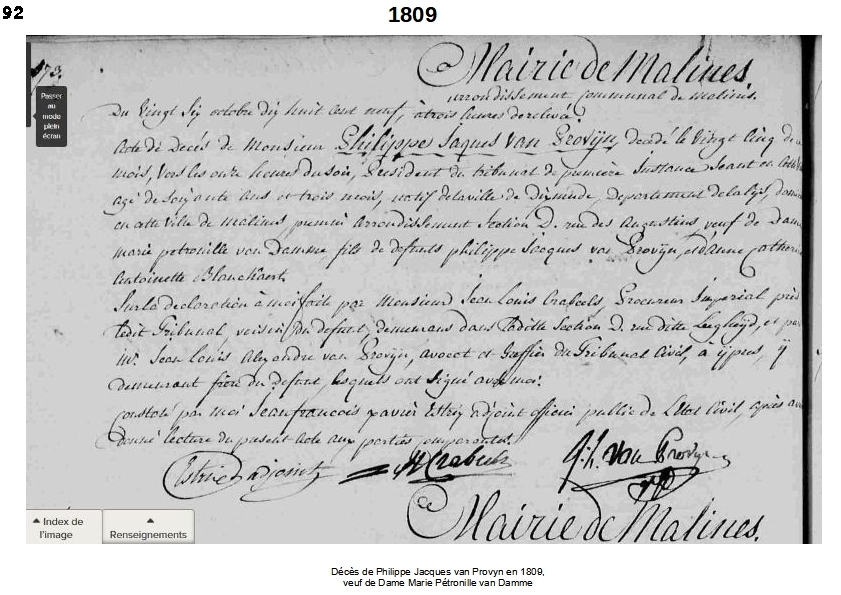 92
1809
173.
Mairie de Malines
arrondissement communal de malines.
Passer
au
mode
plein
écran
Du vingt six octobre dix huit cent neuf, à trois heures de relevée.
Acte de Décès de Monsieur Philippes Jaques Van Provijn, décédé le vingt cinq de
mois, vers les onze heures du soir, Président du tribunal de première Instance séant en cette
agé de soixante ans et trois mois, natif de la ville de dixmude, Departement de la lijs, dom
en cette ville de malines premier arrondissement Section D. rue des Augustins veuf de Dam
marie petronille van Damme fils de defunts philippe Jacques van Provijn et d'anne Catheri
Antoinette Blanckaert.
Sur la declaration à moi fait par Monsieur Jean Louis Crabeels, Procureur Imperial près
ledit Tribunal, voisin du defunt, demeurant dans ladite Section D. rue dite et par
Mr. Jean Louis Alexandre van Provijn, avocat et Greffier du Tribunal Civil, à ijpres, ij
demeurant du defunt, lesquels ont signé avec moi.
Constaté par moi Jean francois xavier Estrix adjoint officier public de l'état Civil, après av
donné lecture du present acte aux parties comparantes.
Estrix adjoint Crabeels Van Provyn
Mairie de Malines.
Index de
l'image
Renseignements
Décès de Philippe Jacques van Provyn en 1809,
veuf de Dame Marie Pétronille van Damme